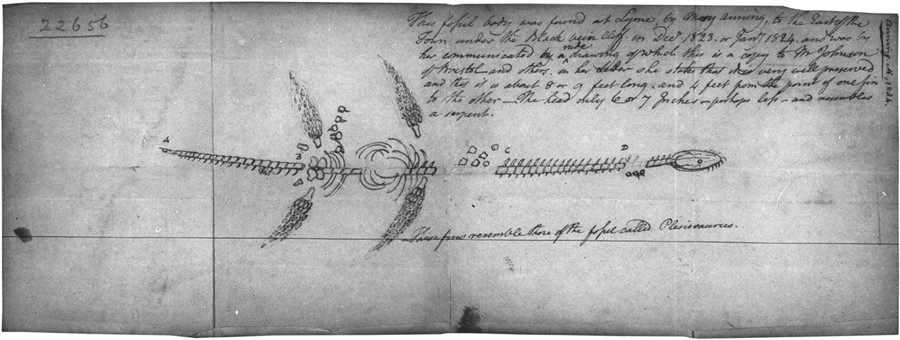 22656
This fossil body was found at Lyme by Mary Anning, to the East of the
Town under the Black Cliff in Decr. 1823 or Jany. 1824 and was by
her communicated by a rude drawing of which this is a copy to Mr Johnson
of Bristol and others. in her letter she states that it is very well preserved
and that it is about 8 or 9 feet long and 4 feet from the point of one fin
to the other — The head only 6 or 7 Inches — perhaps less — and resembles
a serpent.
Anning M. 1824
A
C
D
These fins resemble those of the fossil called Plesiosaurus.